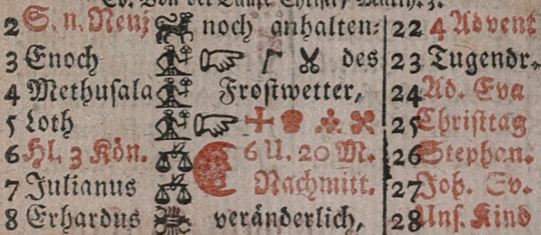 Ev. Von der Tauffe Christi, Matth. 3.
2 S. n. Neuj noch anhalten⸗ 22 4 Advent
3 Enoch des 23 Tugendr.
4 Methusala Frostwetter, 24 Ad. Eva
5 Loth 25 Christtag
6 Hl. 3 Kön. 6 U. 20 M. 26 Stephan.
7 Julianus Nachmitt. 27 Joh. Ev.
8 Erhardus veränderlich, 28 Uns. Kind